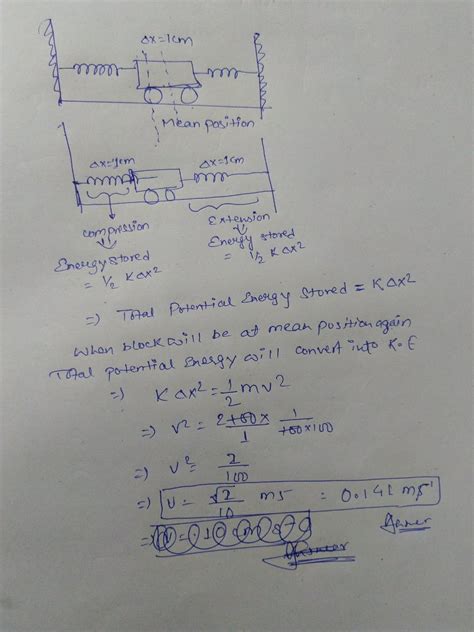 Δx=1cm
Mean position
Δx=1cm
Δx=1cm
compression
Extension
Energy stored
= 1/2 KΔx²
Energy stored
= 1/2 KΔx²
=) Total Potential Energy Stored = KΔx²
When block will be at mean position again
Total potential Energy will convert into K.E
=) KΔx² = 1/2 mv²
=) v² = 2×100×/1 1/100×100
=) v² = 2/100
=) v = √2/10 ms = 0.141 ms